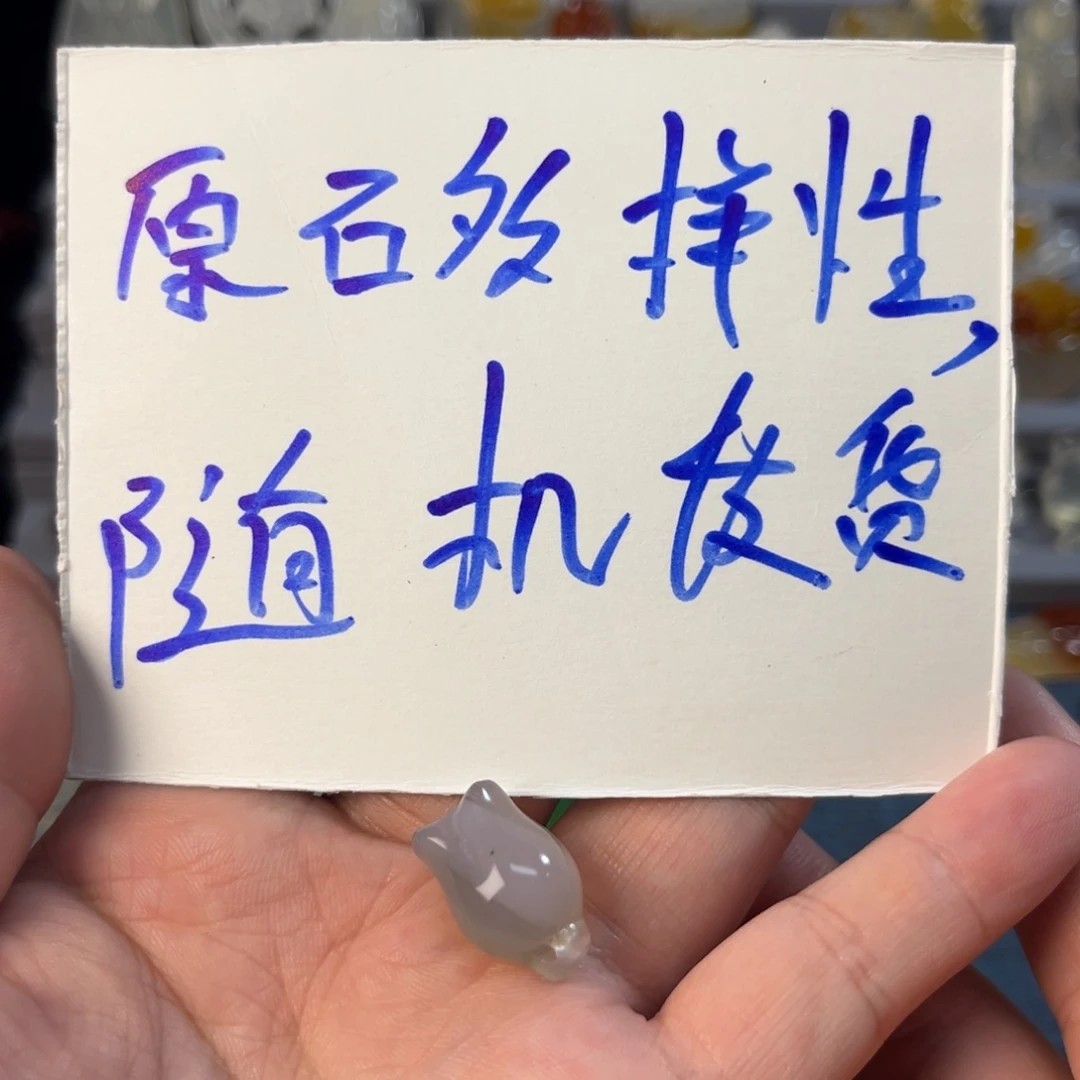 原石多样性,
随机发货